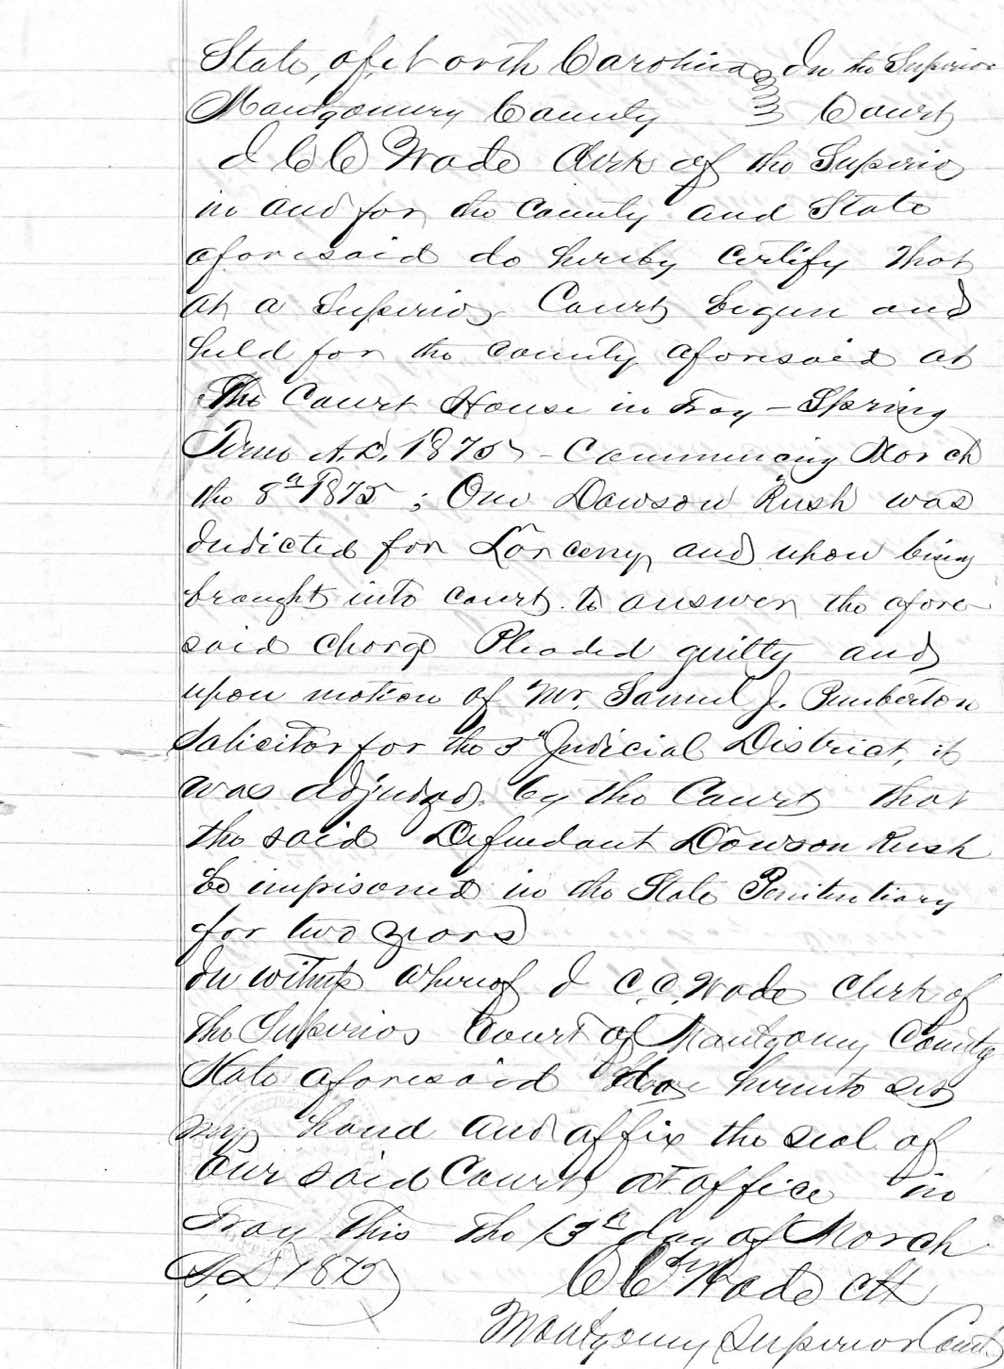 State of North Carolina In the Superior
Montgomery County Court
I C C Wade Clerk of the Superior
in and for the County and State
aforesaid do hereby certify that
at a Superior Court begun and
held for the County aforesaid at
The Court House in Troy - Spring
Term A.D. 1875 - Commencing March
the 8th 1875 ; One Dawson Rush was
Indicted for Larceny and upon being
brought into court to answer the afore-
said charge Pleaded guilty and
upon motion of Mr. Samuel J. Pemberton
Solicitor for the 5" Judicial District, it
was adjudged by the Court that
the said Defendant Dawson Rush
be imprisoned in the State Penitentiary
for two years
In witness whereof I C.C. Wade Clerk of
the Superior Court of Montgomy County
State aforesaid do hereunto set
my hand and affix the seal of
our said Court at office in
Troy this the 13th day of March
A.D. 1875 C C Wade clk
Montgomery Superior Court